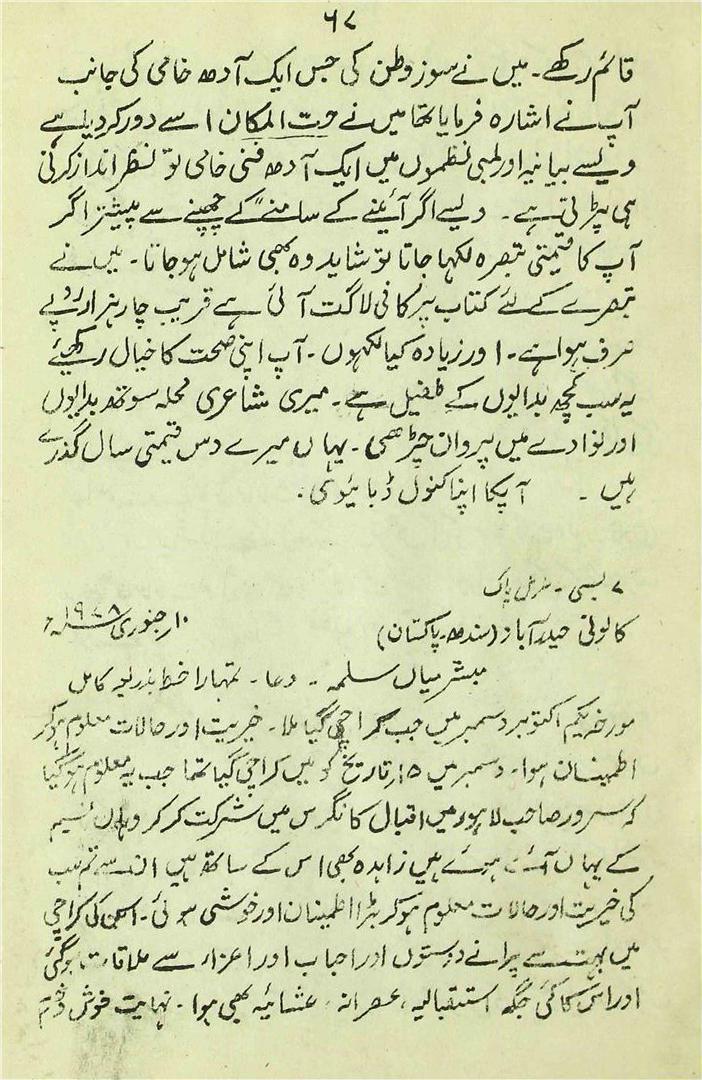 ۶۷
قائم رکھے۔ میں نے سوز وطن کی جس ایک آدھ خامی کی جانب
آپ نے اشارہ فرمایا تھا میں نے حت المکان اسے دور کر دیا ہے
ویسے بیانیہ اور لمبی نظموں میں ایک آدھ فنی خامی تو نظر انداز کرنی
ہی پڑتی ہے۔ ویسے اگر آئینے کے سامنے" کے چھپنے سے پیشتر اگر
آپ کا قیمتی تبصرہ لکھا جاتا تو شاید وہ بھی شامل ہو جاتا۔ میں نے
تبصرے کے لئے کتاب پر کافی لاگت آئی ہے قریب چار ہزار روپے
صرف ہوا ہے۔ اور زیادہ کیا لکھوں۔ آپ اپنی صحت کا خیال رکھیئے
یہ سب کچھ بدایوں کے طفیل ہے۔ میری شاعری محلہ سوتھ بدایوں
اور نوادے میں پروان چڑھی۔ یہاں میرے دس قیمتی سال گذرے
ہیں۔ آپکا اپنا کنول ڈبائیوی۔
۷ بسی۔ پاک
کالونی حیدرآباد (سندھ۔پاکستان) ۱۰ر جنوری ۱۹۷۸ء
مبشر میاں سلمہ۔ دعا۔ تمہارا خط بذریعہ کامل
مورخہ یکم اکتوبر دسمبر میں جب کراچی گیا ملا۔ خیریت اور حالات معلوم ہو کر
اطمینان ہوا۔ دسمبر میں ۱۵ر تاریخ کو میں کراچی گیا تھا جب یہ معلوم ہو گیا
کہ سرور صاحب لاہور میں اقبال کانگرس میں شرکت کر کر وہاں نسیم
کے یہاں آئے ہوئے ہیں زاہدہ بھی اس کے ساتھ ہیں ان سے تم سب
کی خیریت اور حالات معلوم ہو کر بڑا اطمینان اور خوشی ہوئی۔ کی کراچی
میں بہت سے پرانے دوستوں اور احباب اور اعزاء سے ملاقات ہو گئی
اور اس کا کئی جگہ استقبالیہ، عصرانہ، عشائیہ بھی ہوا۔ نہایت خوش و خرم